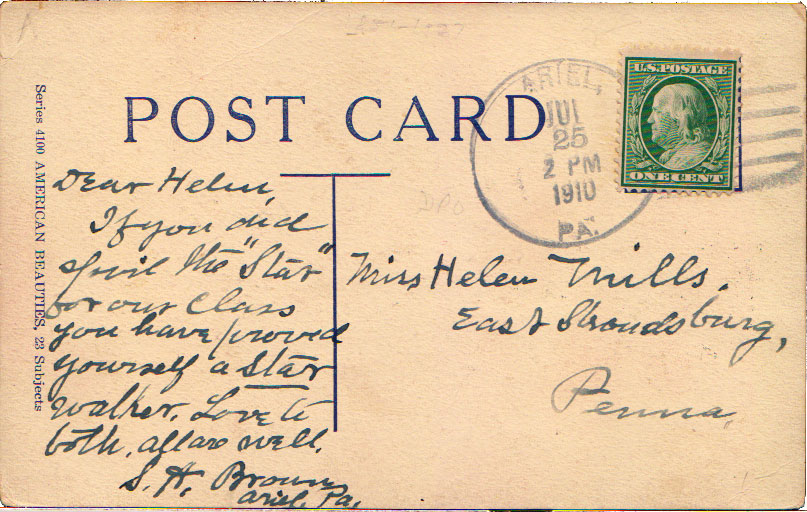 POST CARD
ARIEL,
JUL
25
2 PM
1910
PA.
U.S. POSTAGE
ONE CENT
Series 4100 AMERICAN BEAUTIES, 23 Subjects
Dear Helen,
If you did
spoil the "Star"
for our class
you have proved
yourself a Star
walker. Love to
both. all are well.
S. A. Brown
Ariel, Pa.
Miss Helen Mills.
East Stroudsburg,
Penna.
DPO